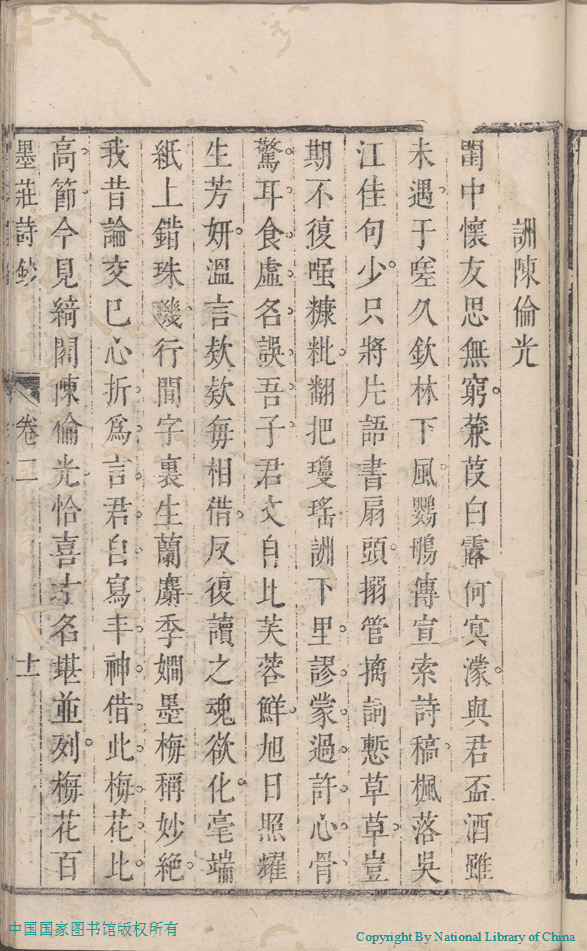 詶陳倫光
閨中懷友思無窮蒹葭白露何㝠濛與君盃酒雖
未遇于嗟久欽林下風鸚鵡傳宣索詩稿楓落吳
江佳句少只將片語書扇頭搦管摛詞慙草草豈
期不復嗤糠粃翻把瓊瑤詶下里謬蒙過許心骨
驚耳食虛名誤吾子君文自比芙蓉鮮旭日照耀
生芳妍溫言欸欸每相借反復讀之魂欲化毫端
紙上錯珠璣行間字裏生蘭麝季嫺墨梅稱妙絕
我昔論交已心折爲言君自寫丰神借此梅花比
高節今見綺閣陳倫光恰喜才名堪並列梅花百
墨莊詩鈔 卷二 十一
中国国家图书馆版权所有
Copyright By National Library of China